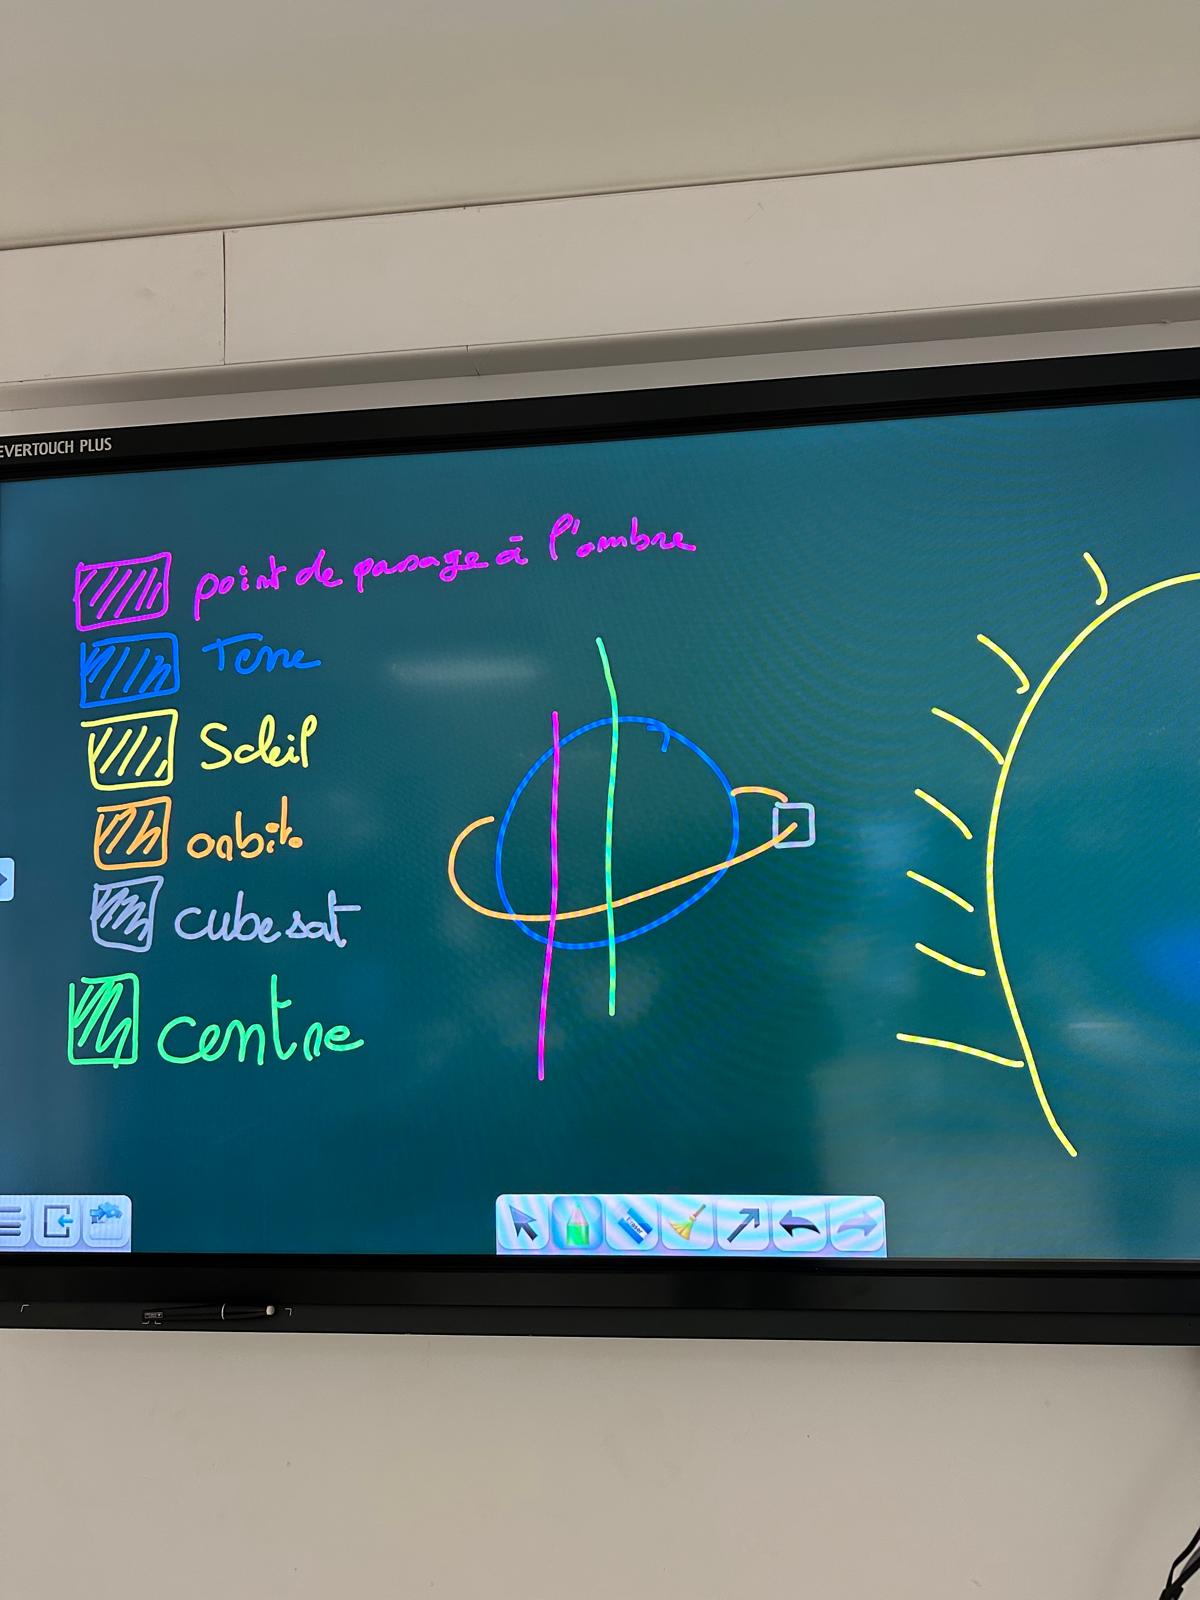 EVERTOUCH PLUS
point de passage à l'ombre
Terre
Soleil
orbite
cubesat
centre
Eraser